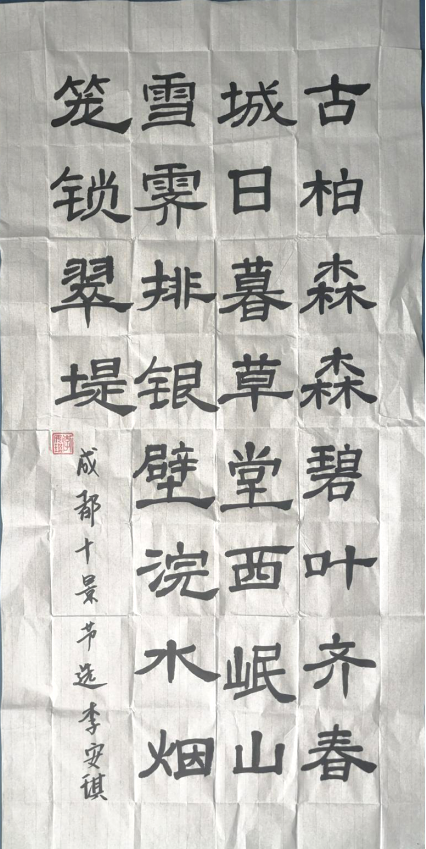 古柏森森碧叶齐春
城日暮草堂西岷山
雪霁排银壁浣水烟
笼锁翠堤
成都十景节选李安琪